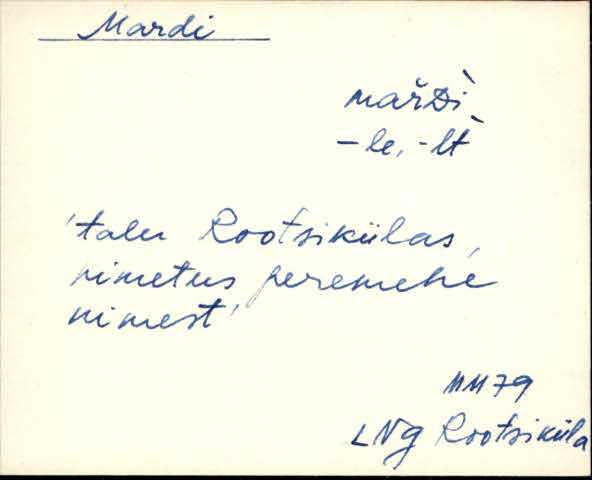 Mardi
mařDì,
-le, -lt
'talu Rootsikülas,
nimetus peremehe
nimest'
MM 79
LNg Rootsiküla